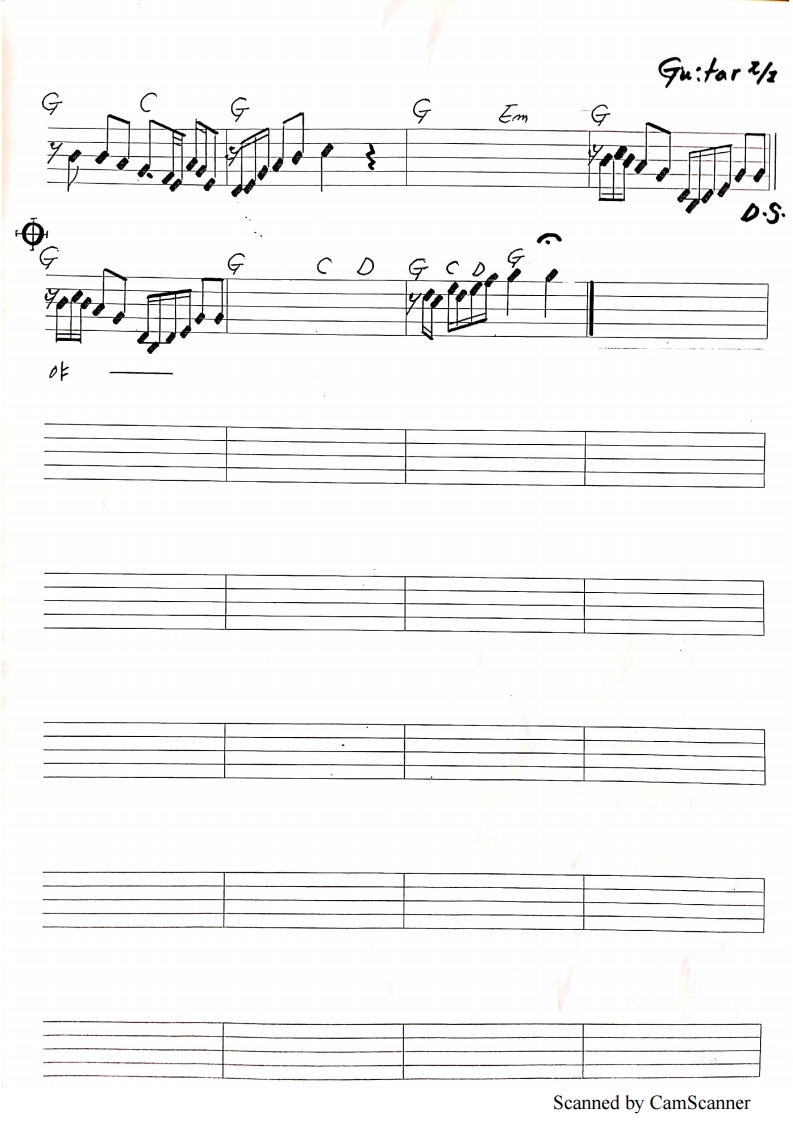 Guitar 2/2
G C G G Em G
D.S.
G G C D G C D G
Scanned by CamScanner